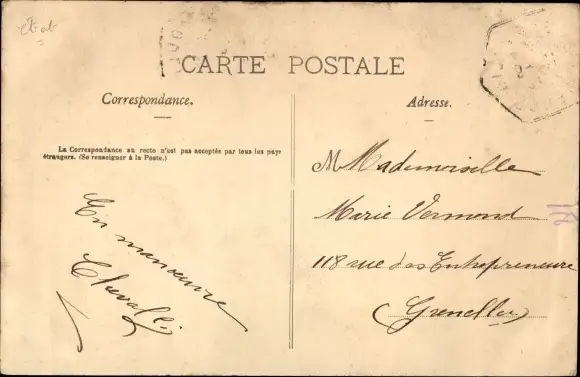 CARTE POSTALE
Correspondance.
Adresse.
La Correspondance au recto n'est pas acceptée par tous les pays
étrangers. (Se renseigner à la Poste.)
En manœuvre
M Mademoiselle
Marie Vermond
118 rue des Entrepreneurs
(Grenelle)